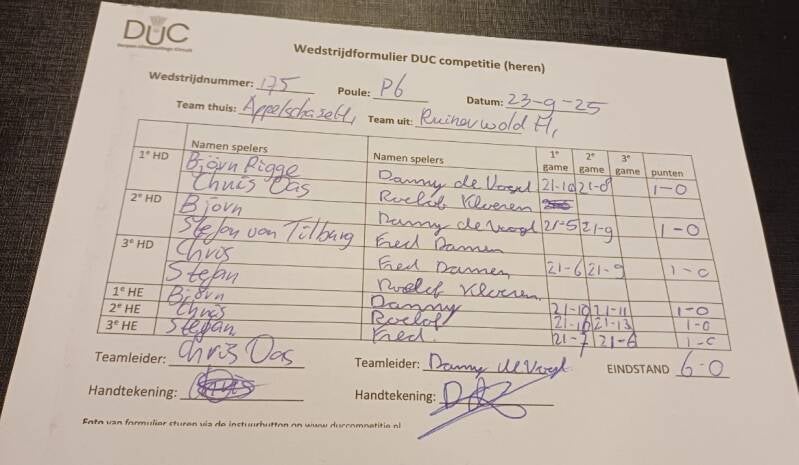 DUC
Wedstrijdformulier DUC competitie (heren)
Wedstrijdnummer: 175 Poule: P6 Datum: 23-9-25
Team thuis: Team uit: Ruinerwold H1
Namen spelers Namen spelers 1e game 2e game 3e game punten
1e HD Björn Rigge Danny de Vogel 21-10 21-8 1-0
Chris Oas Roelof Kloeren
2e HD Bjorn Danny de Vogel 21-5 21-9 1-0
Stefan van Tilburg Fred Damen
3e HD Chris Fred Damen 21-6 21-9 1-0
Stefan Roelof Kloeren
1e HE Bjorn Danny 21-10 21-11 1-0
2e HE Chris Roelof 21-16 21-13 1-0
3e HE Stefan Fred 21-7 21-6 1-0
Teamleider: Chris Oas Teamleider: Danny de Vogel EINDSTAND 6-0
Handtekening: Handtekening:
Foto van formulier sturen via de instuurbutton op www.duccompetitie.nl